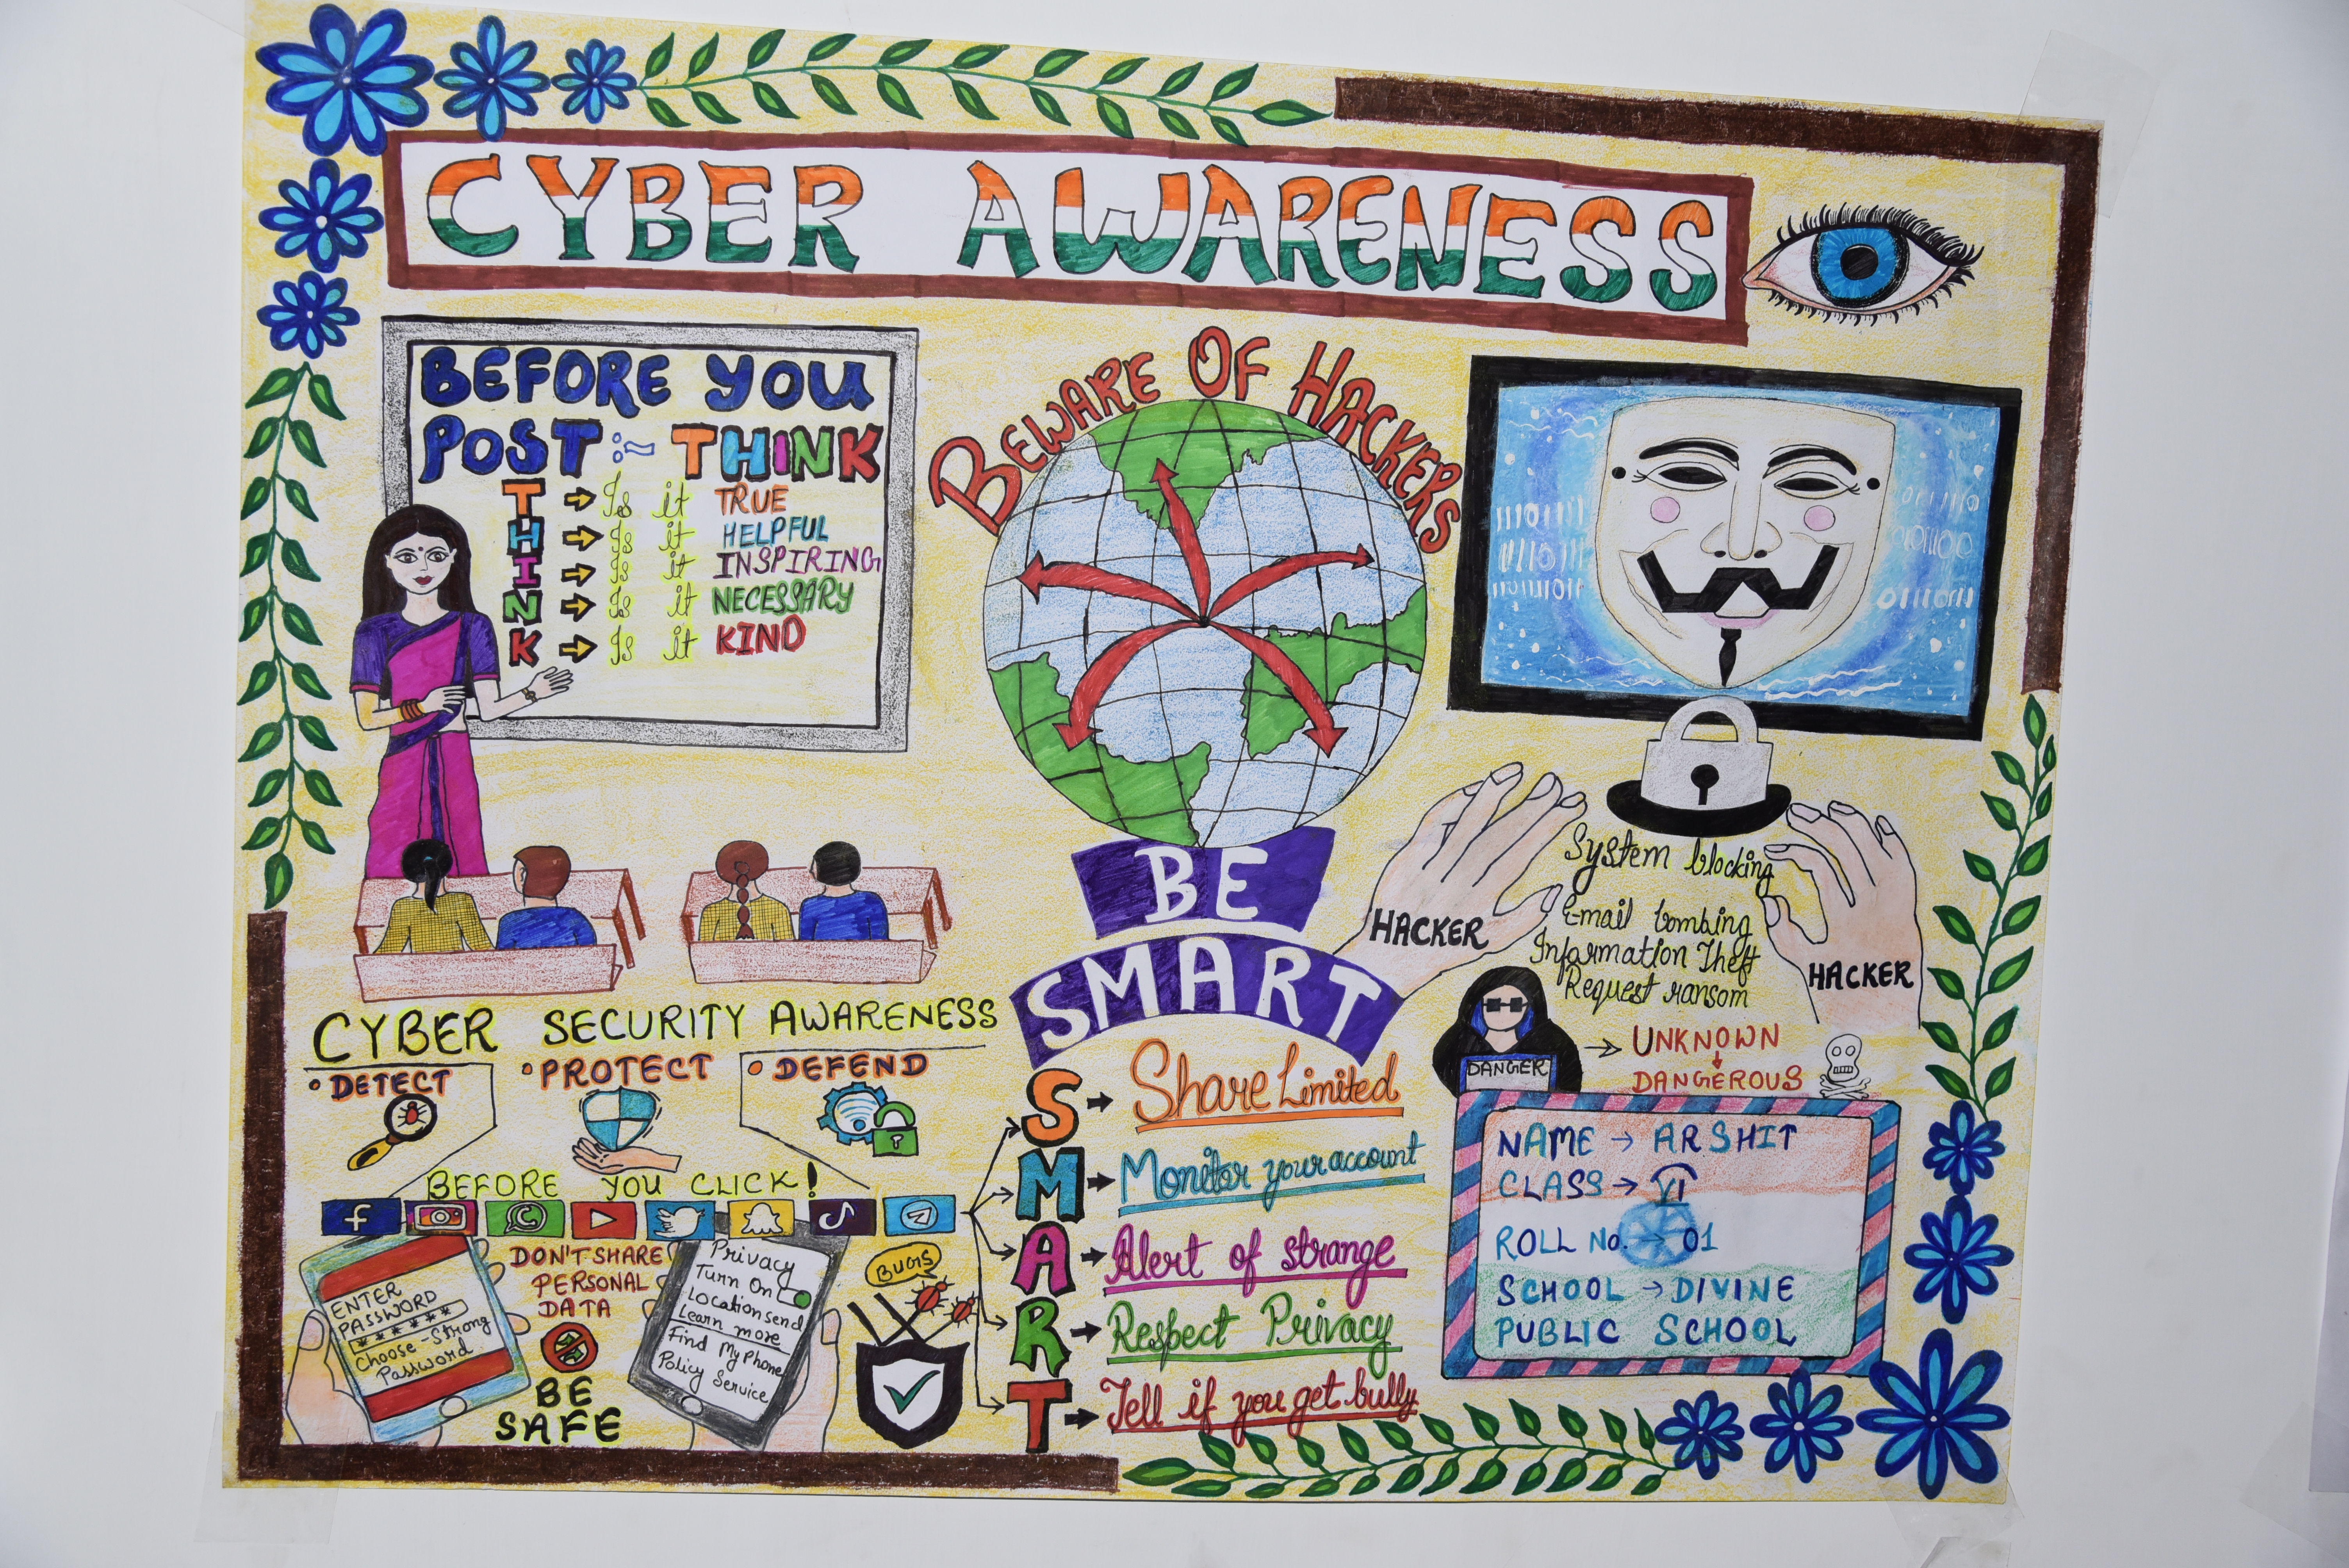 CYBER AWARENESS
BEFORE YOU
POST :- THINK
T → Is it TRUE
H → Is it HELPFUL
I → Is it INSPIRING
N → Is it NECESSARY
K → Is it KIND
BEWARE OF HACKERS
BE
SMART
System blocking
E-mail bombing
Information Theft
Request ransom
HACKER
HACKER
DANGER
→ UNKNOWN
↓
DANGEROUS
CYBER SECURITY AWARENESS
• DETECT
• PROTECT
• DEFEND
BEFORE YOU CLICK!
ENTER
PASSWORD
******
Choose -Strong
Password
DON'T SHARE
PERSONAL
DATA
BE
SAFE
Privacy
Turn On
Location send
Learn more
Find My Phone
Policy Service
BUGS
S → Share Limited
M → Monitor your account
A → Alert of strange
R → Respect Privacy
T → Tell if you get bully
NAME → ARSHIT
CLASS → VI
ROLL No. → 01
SCHOOL → DIVINE
PUBLIC SCHOOL